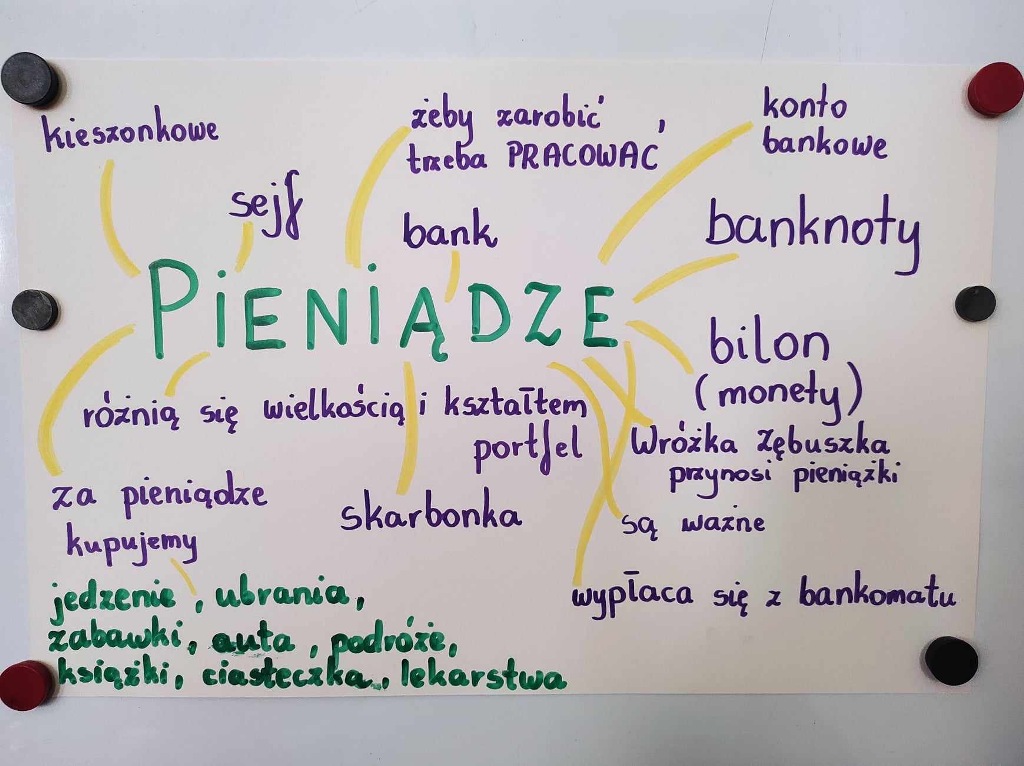 kieszonkowe
żeby zarobić,
trzeba PRACOWAĆ
konto
bankowe
sejf
bank
banknoty
PIENIĄDZE
bilon
(monety)
różnią się wielkością i kształtem
portfel
Wróżka Zębuszka
przynosi pieniążki
za pieniądze
kupujemy
skarbonka
są ważne
wypłaca się z bankomatu
jedzenie, ubrania,
zabawki, auta, podróże,
książki, ciasteczka, lekarstwa